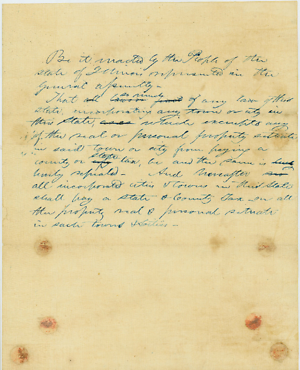 Be it enacted by the People of the
state of Illinois represented in the
General Assembly—
That so much of any law of this
state, incorporating any town or city in
this state, which exempts any
of the real or personal property situate
in said town or city from paying a
county or state tax, be and the same is
hereby repealed— And hereafter
all incorporated cities & towns in this state
shall pay a state & County tax on all
the property real & personal situate
in such towns & cities—